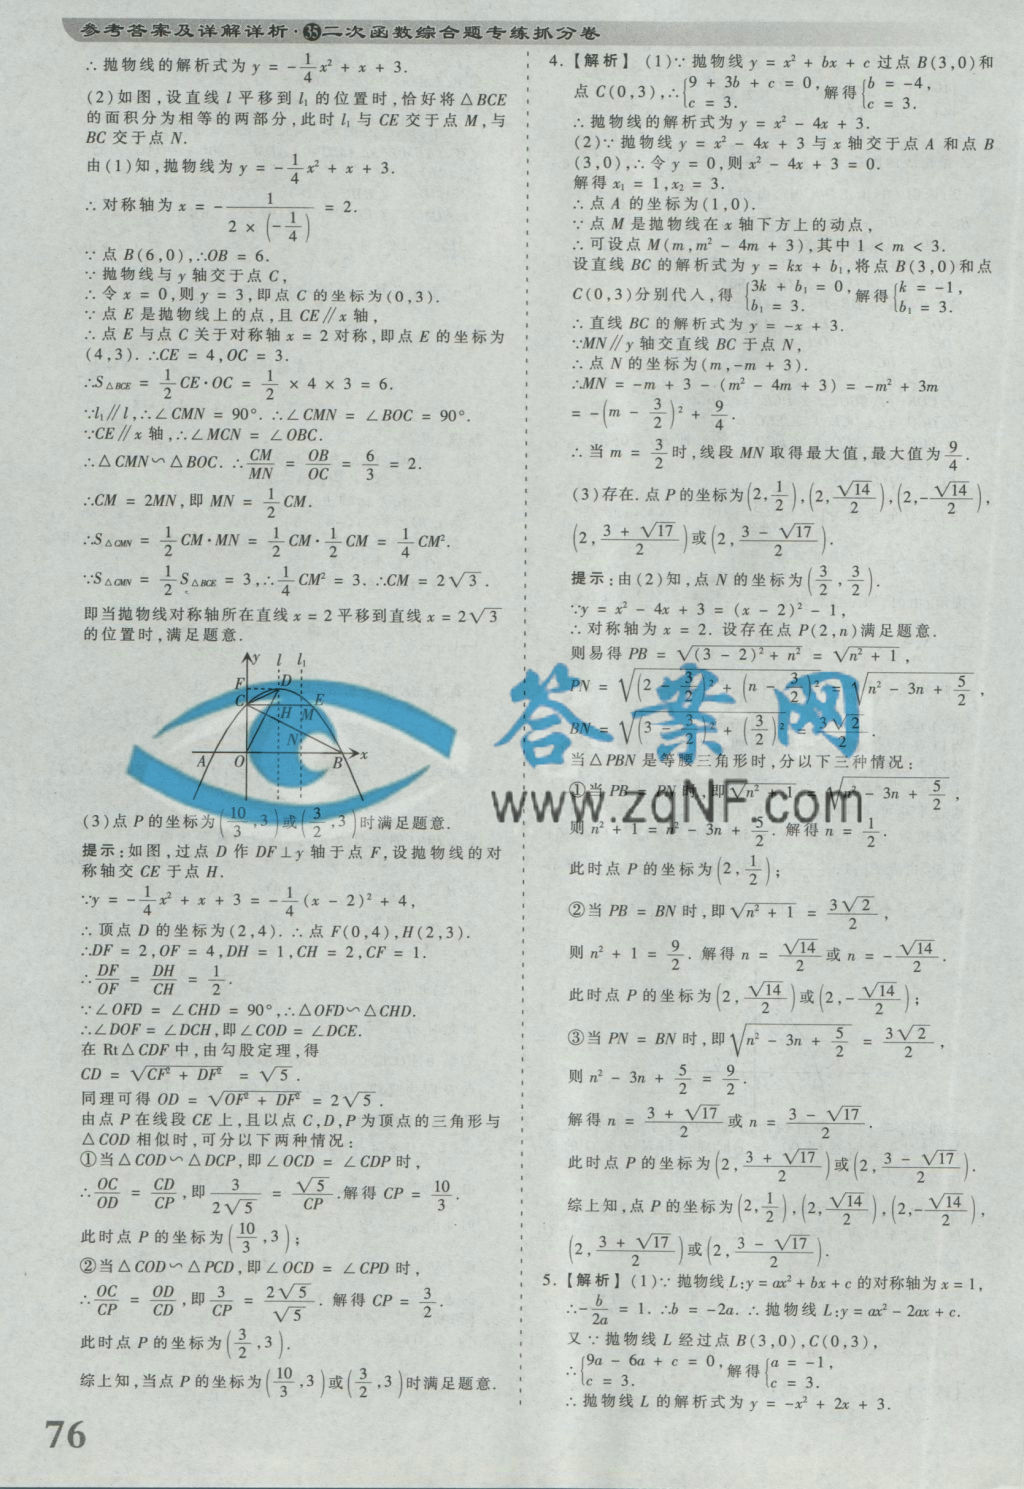 参考答案及详解详析·㉟二次函数综合题专练抓分卷
∴抛物线的解析式为 y = -1/4x² + x + 3.
(2)如图,设直线 l 平移到 l₁ 的位置时,恰好将△BCE
的面积分为相等的两部分,此时 l₁ 与 CE 交于点 M,与
BC 交于点 N.
由(1)知,抛物线为 y = -1/4x² + x + 3.
∴对称轴为 x = -1/(2×(-1/4)) = 2.
∵点 B(6,0),∴OB = 6.
∵抛物线与 y 轴交于点 C,
∴令 x = 0,则 y = 3,即点 C 的坐标为(0,3).
∵点 E 是抛物线上的点,且 CE∥x 轴,
∴点 E 与点 C 关于对称轴 x = 2 对称,即点 E 的坐标为
(4,3). ∴CE = 4,OC = 3.
∴S△BCE = 1/2CE·OC = 1/2 × 4 × 3 = 6.
∵l₁∥l,∴∠CMN = 90°. ∴∠CMN = ∠BOC = 90°.
∵CE∥x 轴,∴∠MCN = ∠OBC.
∴△CMN∽△BOC. ∴CM/MN = OB/OC = 6/3 = 2.
∴CM = 2MN,即 MN = 1/2CM.
∴S△CMN = 1/2CM·MN = 1/2CM·1/2CM = 1/4CM².
∵S△CMN = 1/2S△BCE = 3,∴1/4CM² = 3. ∴CM = 2√3.
即当抛物线对称轴所在直线 x = 2 平移到直线 x = 2√3
的位置时,满足题意.
y l l₁
F D
C E
H M
N
A O B x
(3)点 P 的坐标为(10/3,3)或(3/2,3)时满足题意.
提示:如图,过点 D 作 DF⊥y 轴于点 F,设抛物线的对
称轴交 CE 于点 H.
∵y = -1/4x² + x + 3 = -1/4(x - 2)² + 4,
∴顶点 D 的坐标为(2,4). ∴点 F(0,4),H(2,3).
∴DF = 2,OF = 4,DH = 1,CH = 2,CF = 1.
∴DF/OF = DH/CH = 1/2.
∵∠OFD = ∠CHD = 90°,∴△OFD∽△CHD.
∴∠DOF = ∠DCH,即∠COD = ∠DCE.
在 Rt△CDF 中,由勾股定理,得
CD = √(CF² + DF²) = √5.
同理可得 OD = √(OF² + DF²) = 2√5.
由点 P 在线段 CE 上,且以点 C,D,P为顶点的三角形与
△COD 相似时,可分以下两种情况:
①当△COD∽△DCP,即∠OCD = ∠CDP 时,
∴OC/OD = CD/CP,即3/(2√5) = √5/CP.解得 CP = 10/3.
此时点 P 的坐标为(10/3,3);
②当△COD∽△PCD,即∠OCD = ∠CPD 时,
∴OC/CP = OD/CD,即3/CP = 2√5/√5. 解得 CP = 3/2.
此时点 P 的坐标为(3/2,3).
综上知,当点 P 的坐标为(10/3,3)或(3/2,3)时满足题意.
76
4.【解析】(1)∵抛物线 y = x² + bx + c 过点 B(3,0)和
点 C(0,3),∴{9 + 3b + c = 0, c = 3. 解得{b = -4, c = 3.
∴抛物线的解析式为 y = x² - 4x + 3.
(2)∵抛物线 y = x² - 4x + 3 与 x 轴交于点 A 和点 B
(3,0),∴令 y = 0,则 x² - 4x + 3 = 0.
解得 x₁ = 1,x₂ = 3.
∴点 A 的坐标为(1,0).
∵点 M 是抛物线在 x 轴下方上的动点,
∴可设点 M(m,m² - 4m + 3),其中 1 < m < 3.
设直线 BC 的解析式为 y = kx + b₁,将点 B(3,0)和点
C(0,3)分别代入,得{3k + b₁ = 0, b₁ = 3. 解得{k = -1, b₁ = 3.
∴直线 BC 的解析式为 y = -x + 3.
∵MN∥y 轴交直线 BC 于点 N,
∴点 N 的坐标为(m,-m + 3).
∴MN = -m + 3 - (m² - 4m + 3) = -m² + 3m
= -(m - 3/2)² + 9/4.
∴当 m = 3/2 时,线段 MN 取得最大值,最大值为9/4.
(3)存在. 点 P 的坐标为(2,1/2),(2,√14/2),(2,-√14/2),
(2,(3 + √17)/2)或(2,(3 - √17)/2).
提示:由(2)知,点 N 的坐标为(3/2,3/2).
∵y = x² - 4x + 3 = (x - 2)² - 1,
∴对称轴为 x = 2. 设存在点 P(2,n)满足题意.
则易得 PB = √((3 - 2)² + n²) = √(n² + 1),
PN = √((2 - 3/2)² + (n - 3/2)²) = √(n² - 3n + 5/2),
BN = √((3 - 3/2)² + (3/2)²) = 3√2/2.
当△PBN 是等腰三角形时,分以下三种情况:
①当 PB = PN 时,即√(n² + 1) = √(n² - 3n + 5/2),
则 n² + 1 = n² - 3n + 5/2. 解得 n = 1/2.
此时点 P 的坐标为(2,1/2);
②当 PB = BN 时,即√(n² + 1) = 3√2/2,
则 n² + 1 = 9/2. 解得 n = √14/2 或 n = -√14/2.
此时点 P 的坐标为(2,√14/2)或(2,-√14/2);
③当 PN = BN 时,即√(n² - 3n + 5/2) = 3√2/2,
则 n² - 3n + 5/2 = 9/2.
解得 n = (3 + √17)/2 或 n = (3 - √17)/2.
此时点 P 的坐标为(2,(3 + √17)/2)或(2,(3 - √17)/2).
综上知,点 P 的坐标为(2,1/2),(2,√14/2),(2,-√14/2),
(2,(3 + √17)/2)或(2,(3 - √17)/2).
5.【解析】(1)∵抛物线 L:y = ax² + bx + c 的对称轴为 x = 1,
∴-b/2a = 1. ∴b = -2a. ∴抛物线 L:y = ax² - 2ax + c.
又∵抛物线 L 经过点 B(3,0),C(0,3),
∴{9a - 6a + c = 0, c = 3. 解得{a = -1, c = 3.
∴抛物线 L 的解析式为 y = -x² + 2x + 3.
答案网
www.zqNF.com